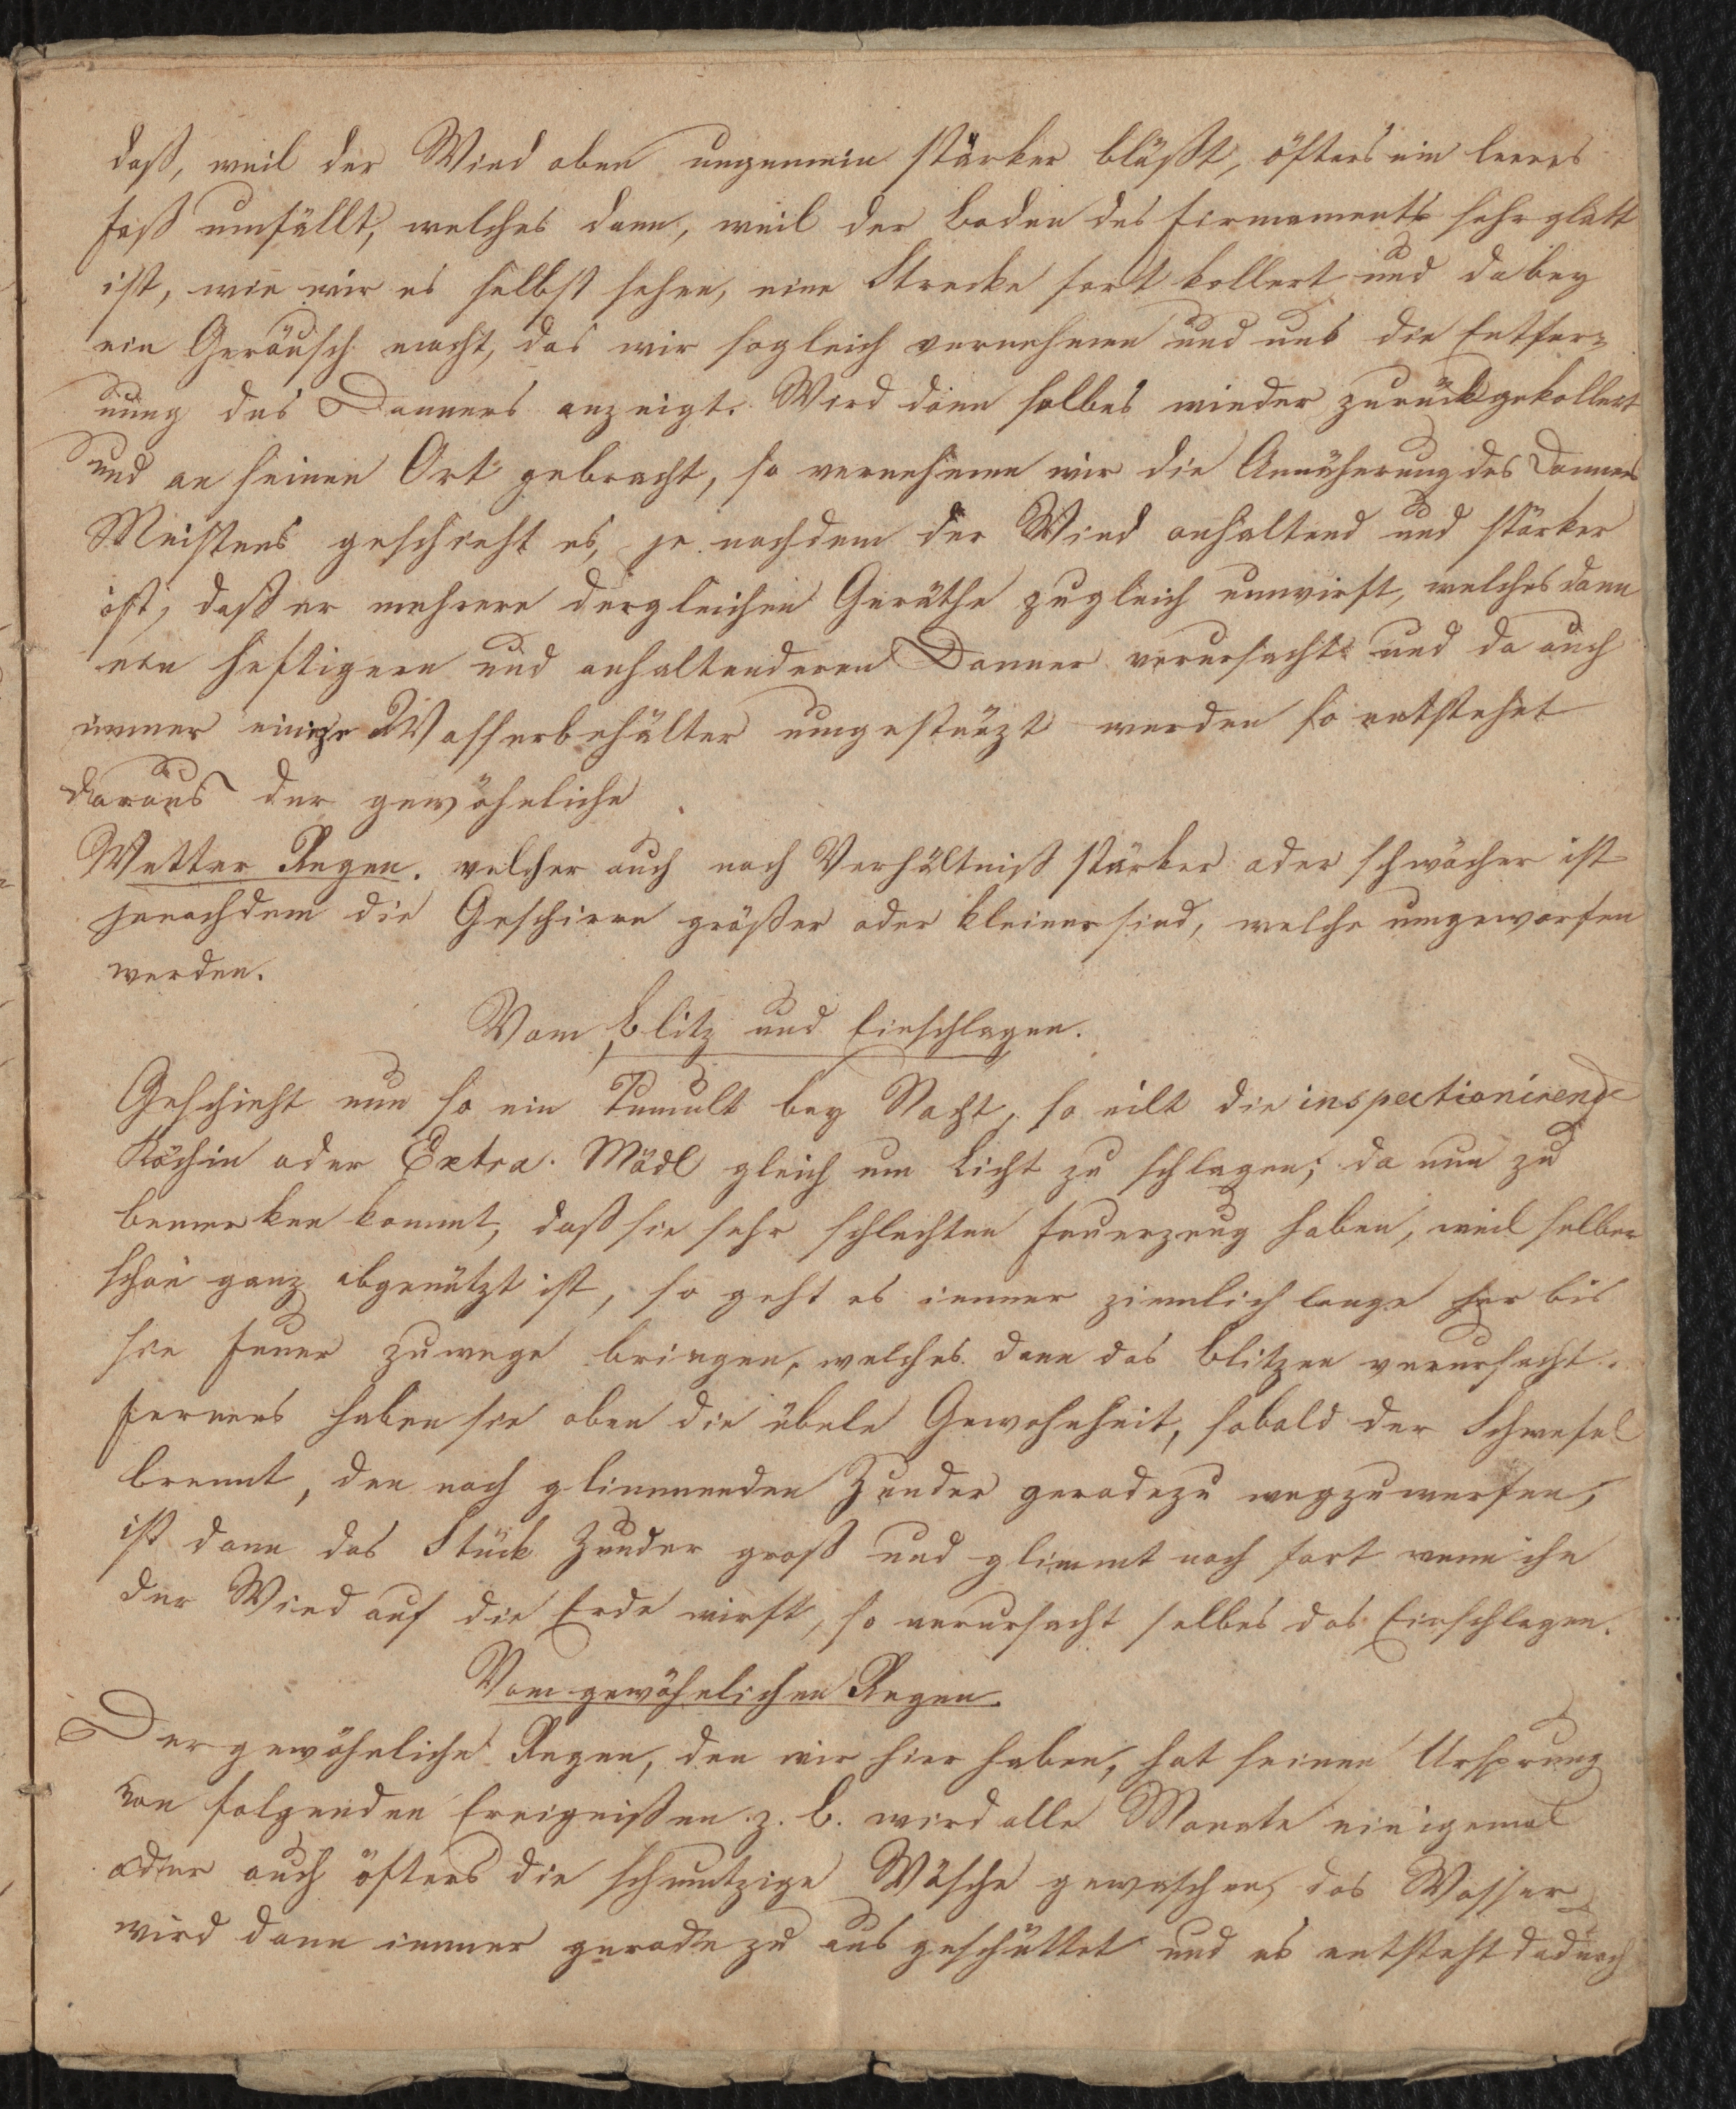 daß, weil der Wind oben ungemein stärker bläßt, öfters ein leeres
Faß umfällt, welches dann, weil der Boden des Firmaments sehr glatt
ist, wie wir es selbst sehen, eine Strecke fort kollert und dabey
ein Geräusch macht, das wir sogleich vernehmen und uns die Entfer=
nung des Donners anzeigt. Wird dann selbes wieder zurückgekollert
und an seinen Ort gebracht, so vernehmen wir die Annäherung des Donners
Meistens geschieht es, je nachdem der Wind anhaltend und stärker
ist, daß er mehrere dergleichen Geräthe zugleich umwirft, welches dann
ein heftigern und anhaltenderen Donner verursacht und da auch
immer einige Wasserbehälter umgestürzt werden so entstehet
daraus der gewöhnliche
Wetter Regen. welcher auch nach Verhältniß stärker oder schwächer ist
jenachdem die Geschirre größer oder kleiner sind, welche umgeworfen
werden.
Vom Blitz und Einschlagen.
Geschieht nun so ein Tumult bey Nacht, so eilt die inspectionirende
Köchin oder Extra. Mädl gleich um Licht zu schlagen; da nun zu
bemerken kommt, daß sie sehr schlechten Feuerzeug haben, weil selber
schon ganz abgenützt ist, so geht es immer ziemlich lange her bis
sie Feuer zuwege bringen, welches dann das Blitzen verursacht.
Ferners haben sie oben die übele Gewohnheit, sobald der Schwefel
brennt, den noch glimmenden Zunder geradezu wegzuwerfen,
ist dann das Stück Zunder groß und glimmt noch fort wenn ihn
der Wind auf die Erde wirft, so verursacht selbes das Einschlagen.
Vom gewöhnlichen Regen.
Der gewöhnliche Regen, den wir hier haben, hat seinen Ursprung
von folgenden Ereignißen z. B. wird alle Monate einigemal
oder auch öfters die schmutzige Wäsche gewaschen, das Wasser
wird dann immer geradezu aus geschüttet und es entsteht dadurch